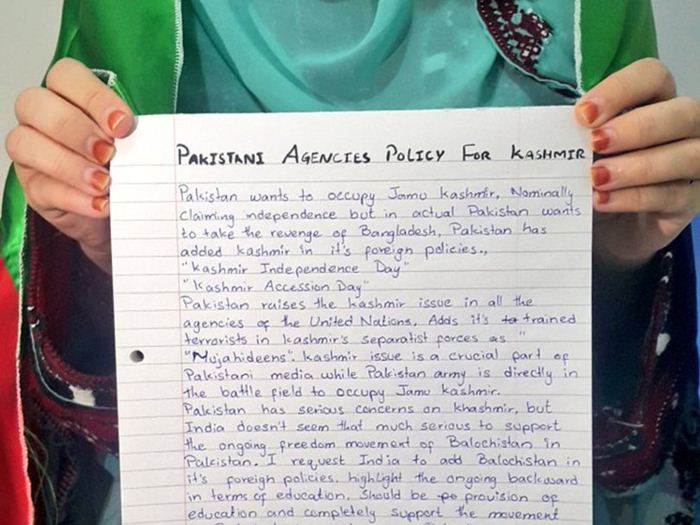 PAKISTANI AGENCIES POLICY FOR KASHMIR
Pakistan wants to occupy Jamu Kashmir, Nominally
claiming independence but in actual Pakistan wants
to take the revenge of Bangladesh, Pakistan has
added kashmir in it's foreign policies.,
"Kashmir Independence Day"
"Kashmir Accession Day"
Pakistan raises the kashmir issue in all the
agencies of the United Nations, Adds it's trained
terrorists in kashmir's separatist forces as "
"Mujahideens". Kashmir issue is a crucial part of
Pakistani media while Pakistan army is directly in
the battle field to occupy Jamu kashmir.
Pakistan has serious concerns on khashmir, but
India doesn't seem that much serious to support
the ongoing freedom movement of Balochistan in
Pakistan. I request India to add Balochistan in
it's foreign policies, highlight the ongoing backward
in terms of education. Should be provision of
education and completely support the movement